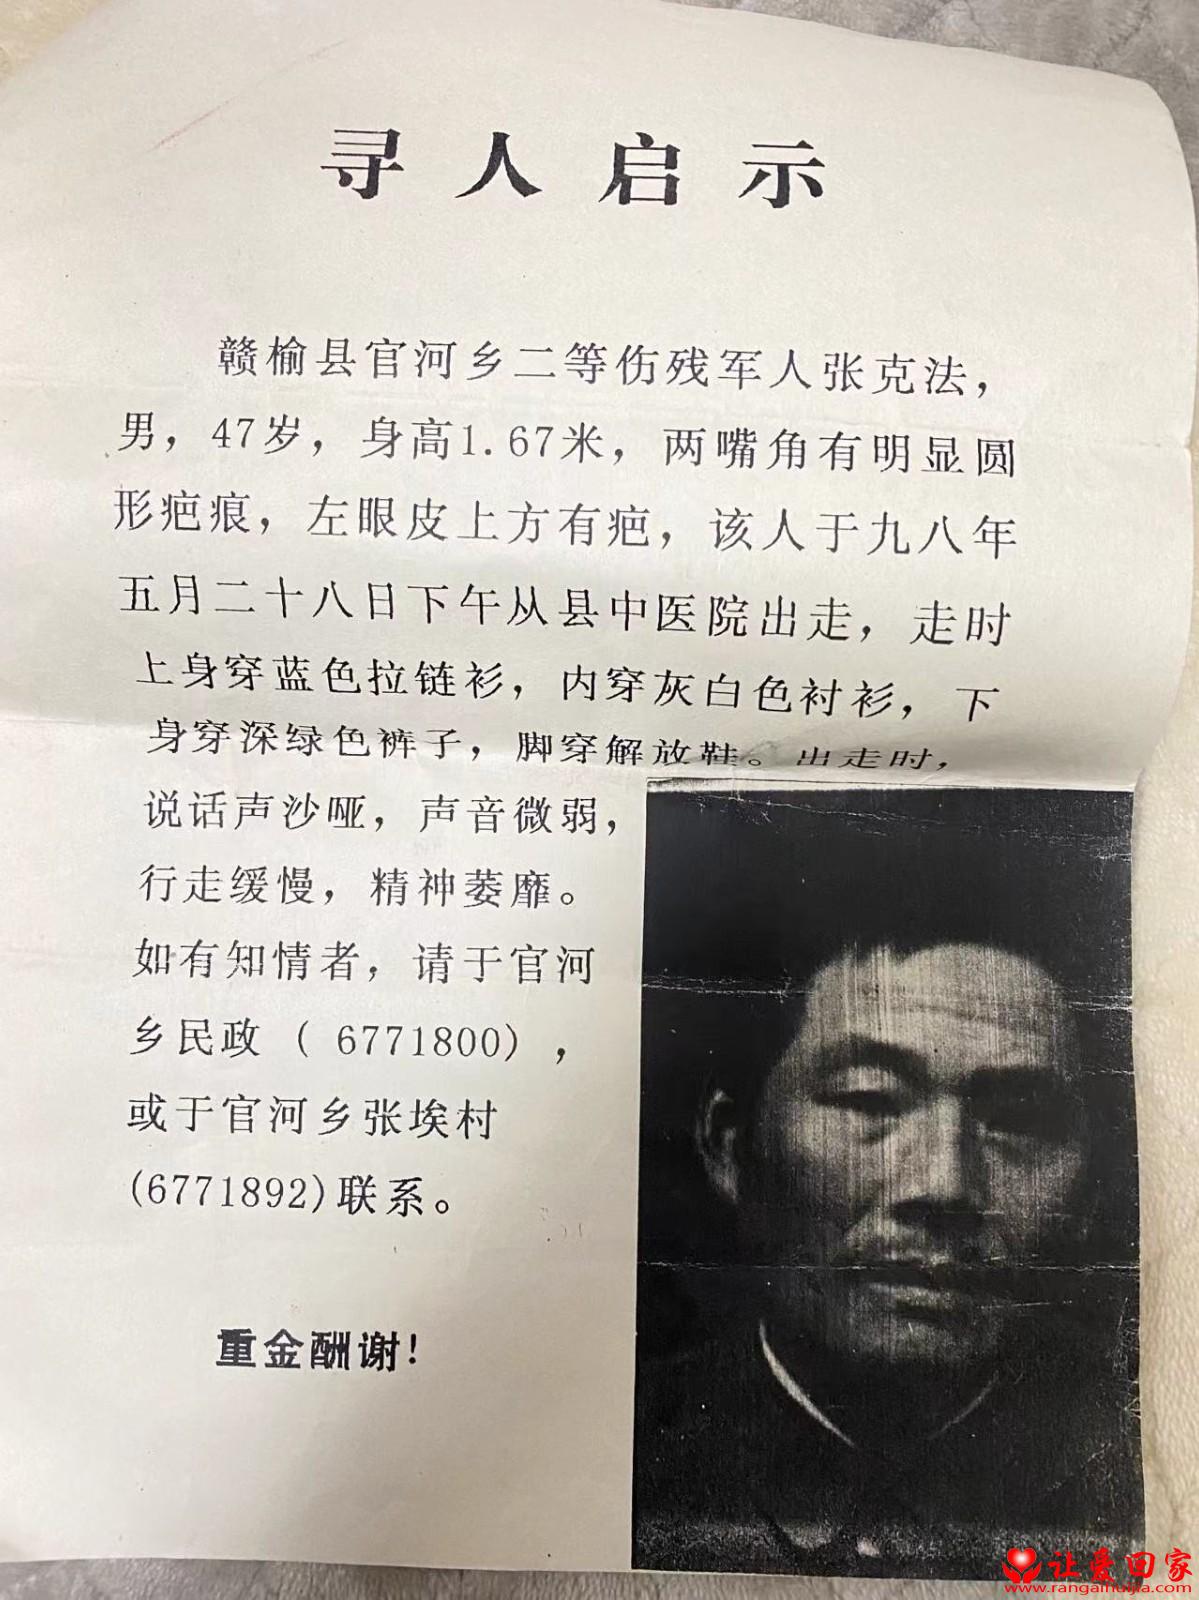 寻人启示
赣榆县官河乡二等伤残军人张克法，
男，47岁，身高1.67米，两嘴角有明显圆
形疤痕，左眼皮上方有疤，该人于九八年
五月二十八日下午从县中医院出走，走时
上身穿蓝色拉链衫，内穿灰白色衬衫，下
身穿深绿色裤子，脚穿解放鞋。出走时，
说话声沙哑，声音微弱，
行走缓慢，精神萎靡。
如有知情者，请于官河
乡民政（6771800），
或于官河乡张埃村
(6771892)联系。
重金酬谢！
让爱回家
www.rangaihuijia.com